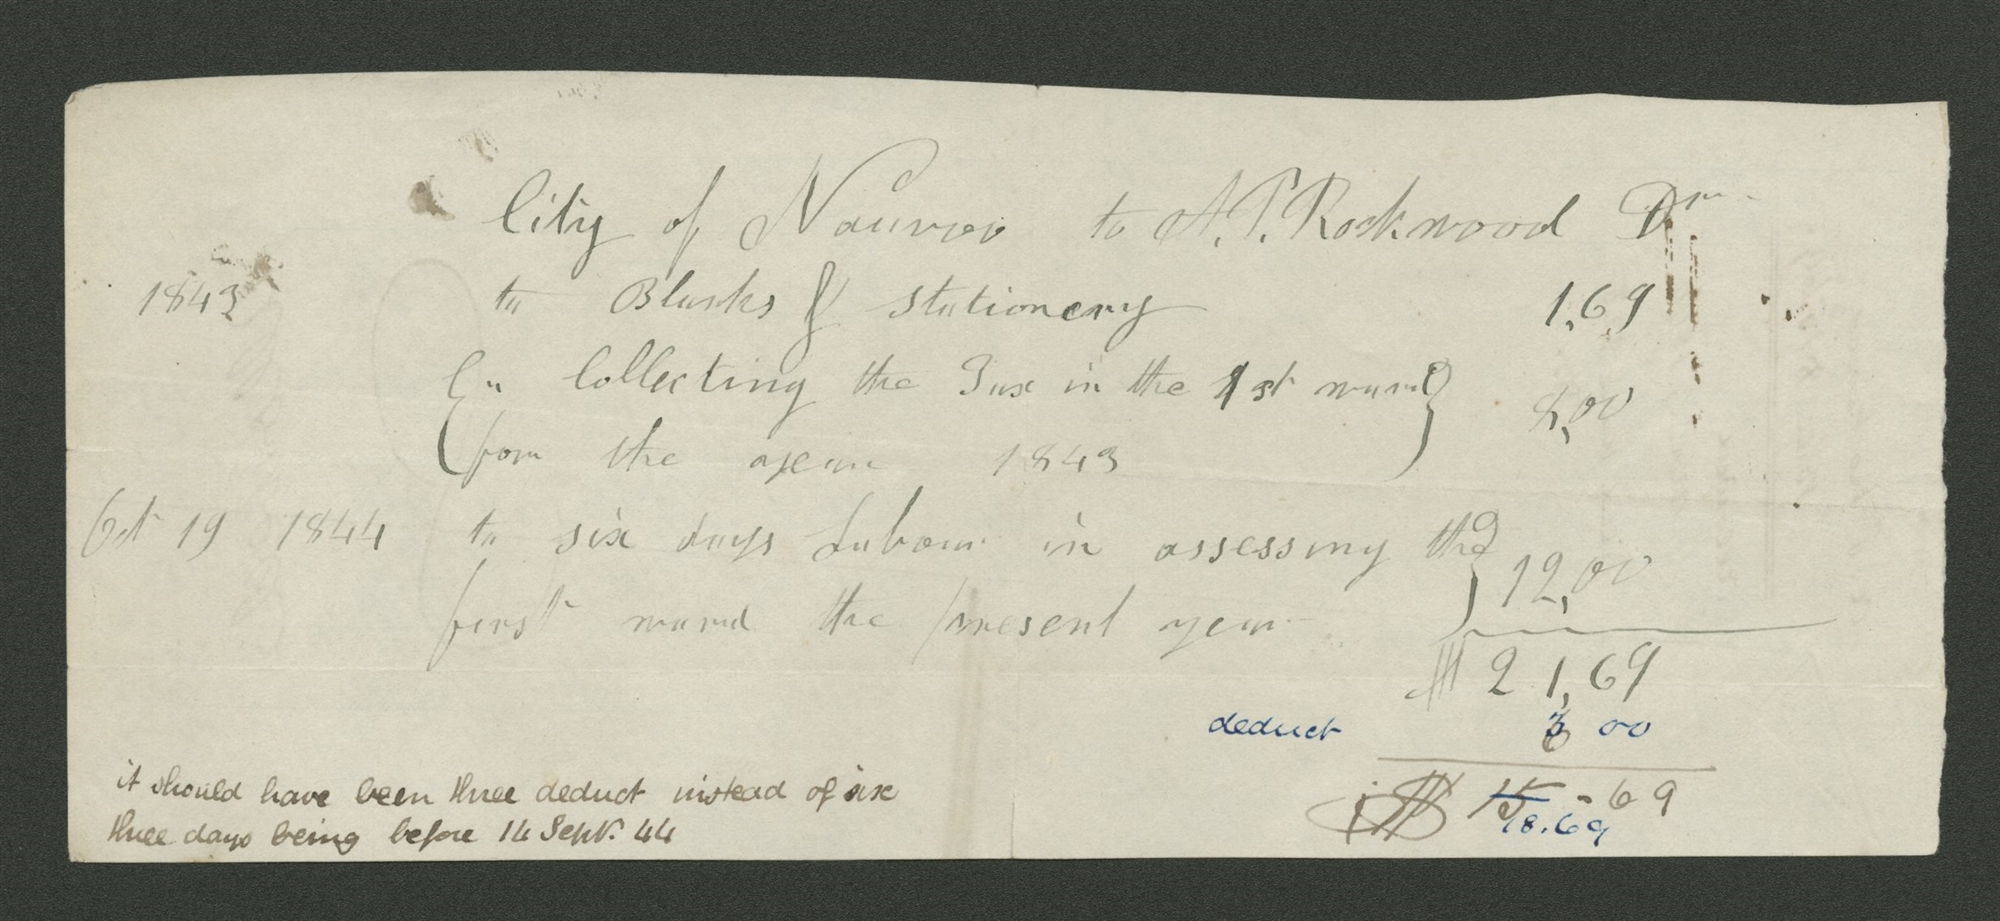 City of Nauvoo to A. P. Rockwood Dr
1843 to Blanks & stationery 1,69
Collecting the Tax in the 1st ward 8,00
for the year 1843
Oct 19 1844 to six days Labour in assessing the 12,00
first ward the present year
$ 21,69
deduct 3 00
$ 15-69
18.69
it should have been three deduct instead of six
three days being before 14 Sept. 44